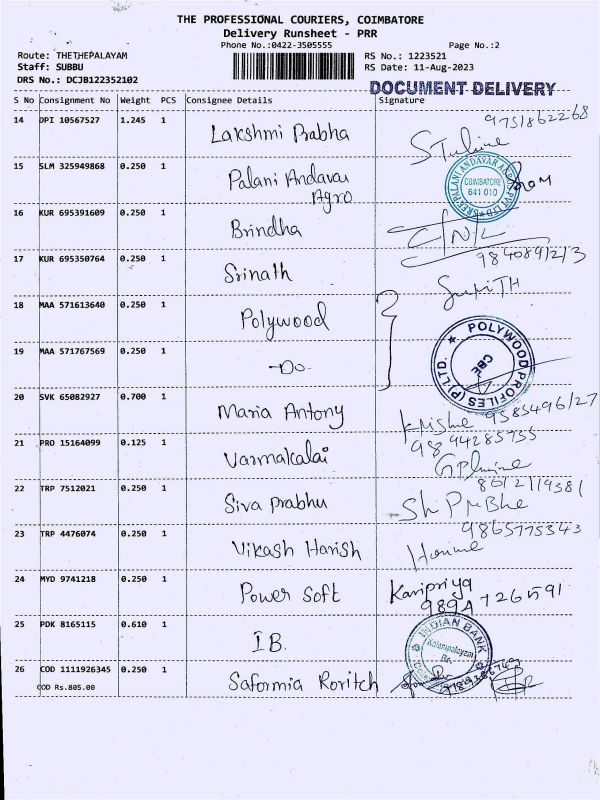 THE PROFESSIONAL COURIERS, COIMBATORE
Delivery Runsheet - PRR
Phone No.:0422-3505555 Page No.:2
Route: THETHEPALAYAM RS No.: 1223521
Staff: SUBBU RS Date: 11-Aug-2023
DRS No.: DCJB122352102
DOCUMENT DELIVERY
S No Consignment No Weight PCS Consignee Details Signature
14 DPI 10567527 1.245 1 Lakshmi Prabha 9751862268
15 SLM 325949868 0.250 1 Palani Andavar
Agro
SREE PALANI ANDAVAR AGRO PVT LTD
COIMBATORE
641 010
16 KUR 695391609 0.250 1 Brindha
17 KUR 695350764 0.250 1 Srinath
18 MAA 571613640 0.250 1 Polywood
19 MAA 571767569 0.250 1 -Do-
POLYWOOD PROFILES (P) LTD.
CBE
20 SVK 65082927 0.700 1 Maria Antony
21 PRO 15164099 0.125 1 Varmakalai 9894285755
22 TRP 7512021 0.250 1 Siva prabhu
23 TRP 4476074 0.250 1 Vikash Harish 9865775343
24 MYD 9741218 0.250 1 Power Soft Karipriya
9894726591
25 PDK 8165115 0.610 1 IB
INDIAN BANK
Kalampalayam
Br.
26 COD 1111926345 0.250 1 Saformia Roritch
COD Rs.805.00